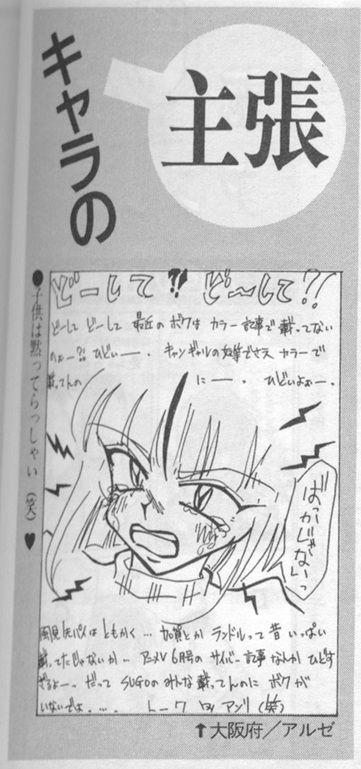 キャラの
主張
●子供は黙ってらっしゃい(笑)♥
どーして⁇ どーして??
どーして どーして 最近の ボクは カラー記事で 載ってない
のぉー?! ひどいー—. キャンギャルの でさえ カラーで
載ってんの にー—. ひどいよぉー.
ばっかじゃないっ
風見先パイはともかく… 加賀とか ランドルって 昔 いっぱい
載ってたじゃないか… 6月号の サイバー記事なんか ひどす
ぎるよー. だって SUGOの みんな 載ってんのに ボクが
いないぞよ....
↑大阪府/アルゼ